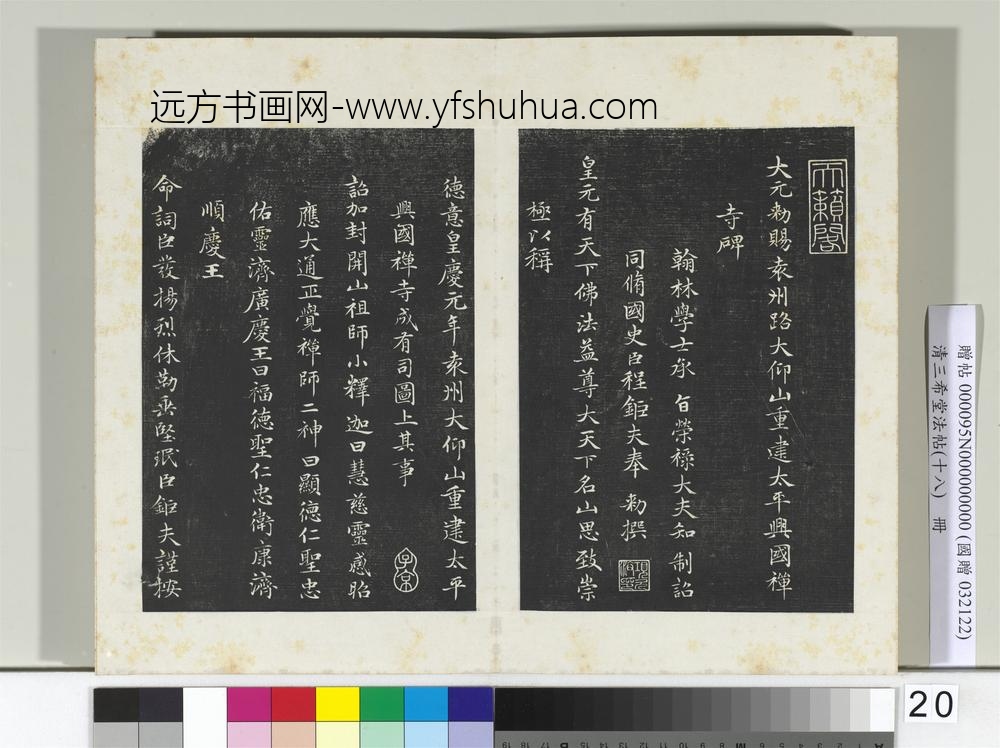 远方书画网-www.yfshuhua.com
天籟閣
大元勅賜袁州路大仰山重建太平興國禪
寺碑
翰林學士承旨榮祿大夫知制詔
同脩國史臣程鉅夫奉勅撰
皇元有天下佛法益尊大天下名山思致崇
極以稱
德意皇慶元年袁州大仰山重建太平
興國禪寺成有司圖上其事
子京
詔加封開山祖師小釋迦曰慧慈靈感昭
應大通正覺禪師二神曰顯德仁聖忠
佑靈濟廣慶王曰福德聖仁忠衛康濟
順慶王
命詞臣發揚烈休勒垂堅珉臣鉅夫謹按
贈帖 000095N000000000 (國贈 032122)
清三希堂法帖(十八) 冊
20